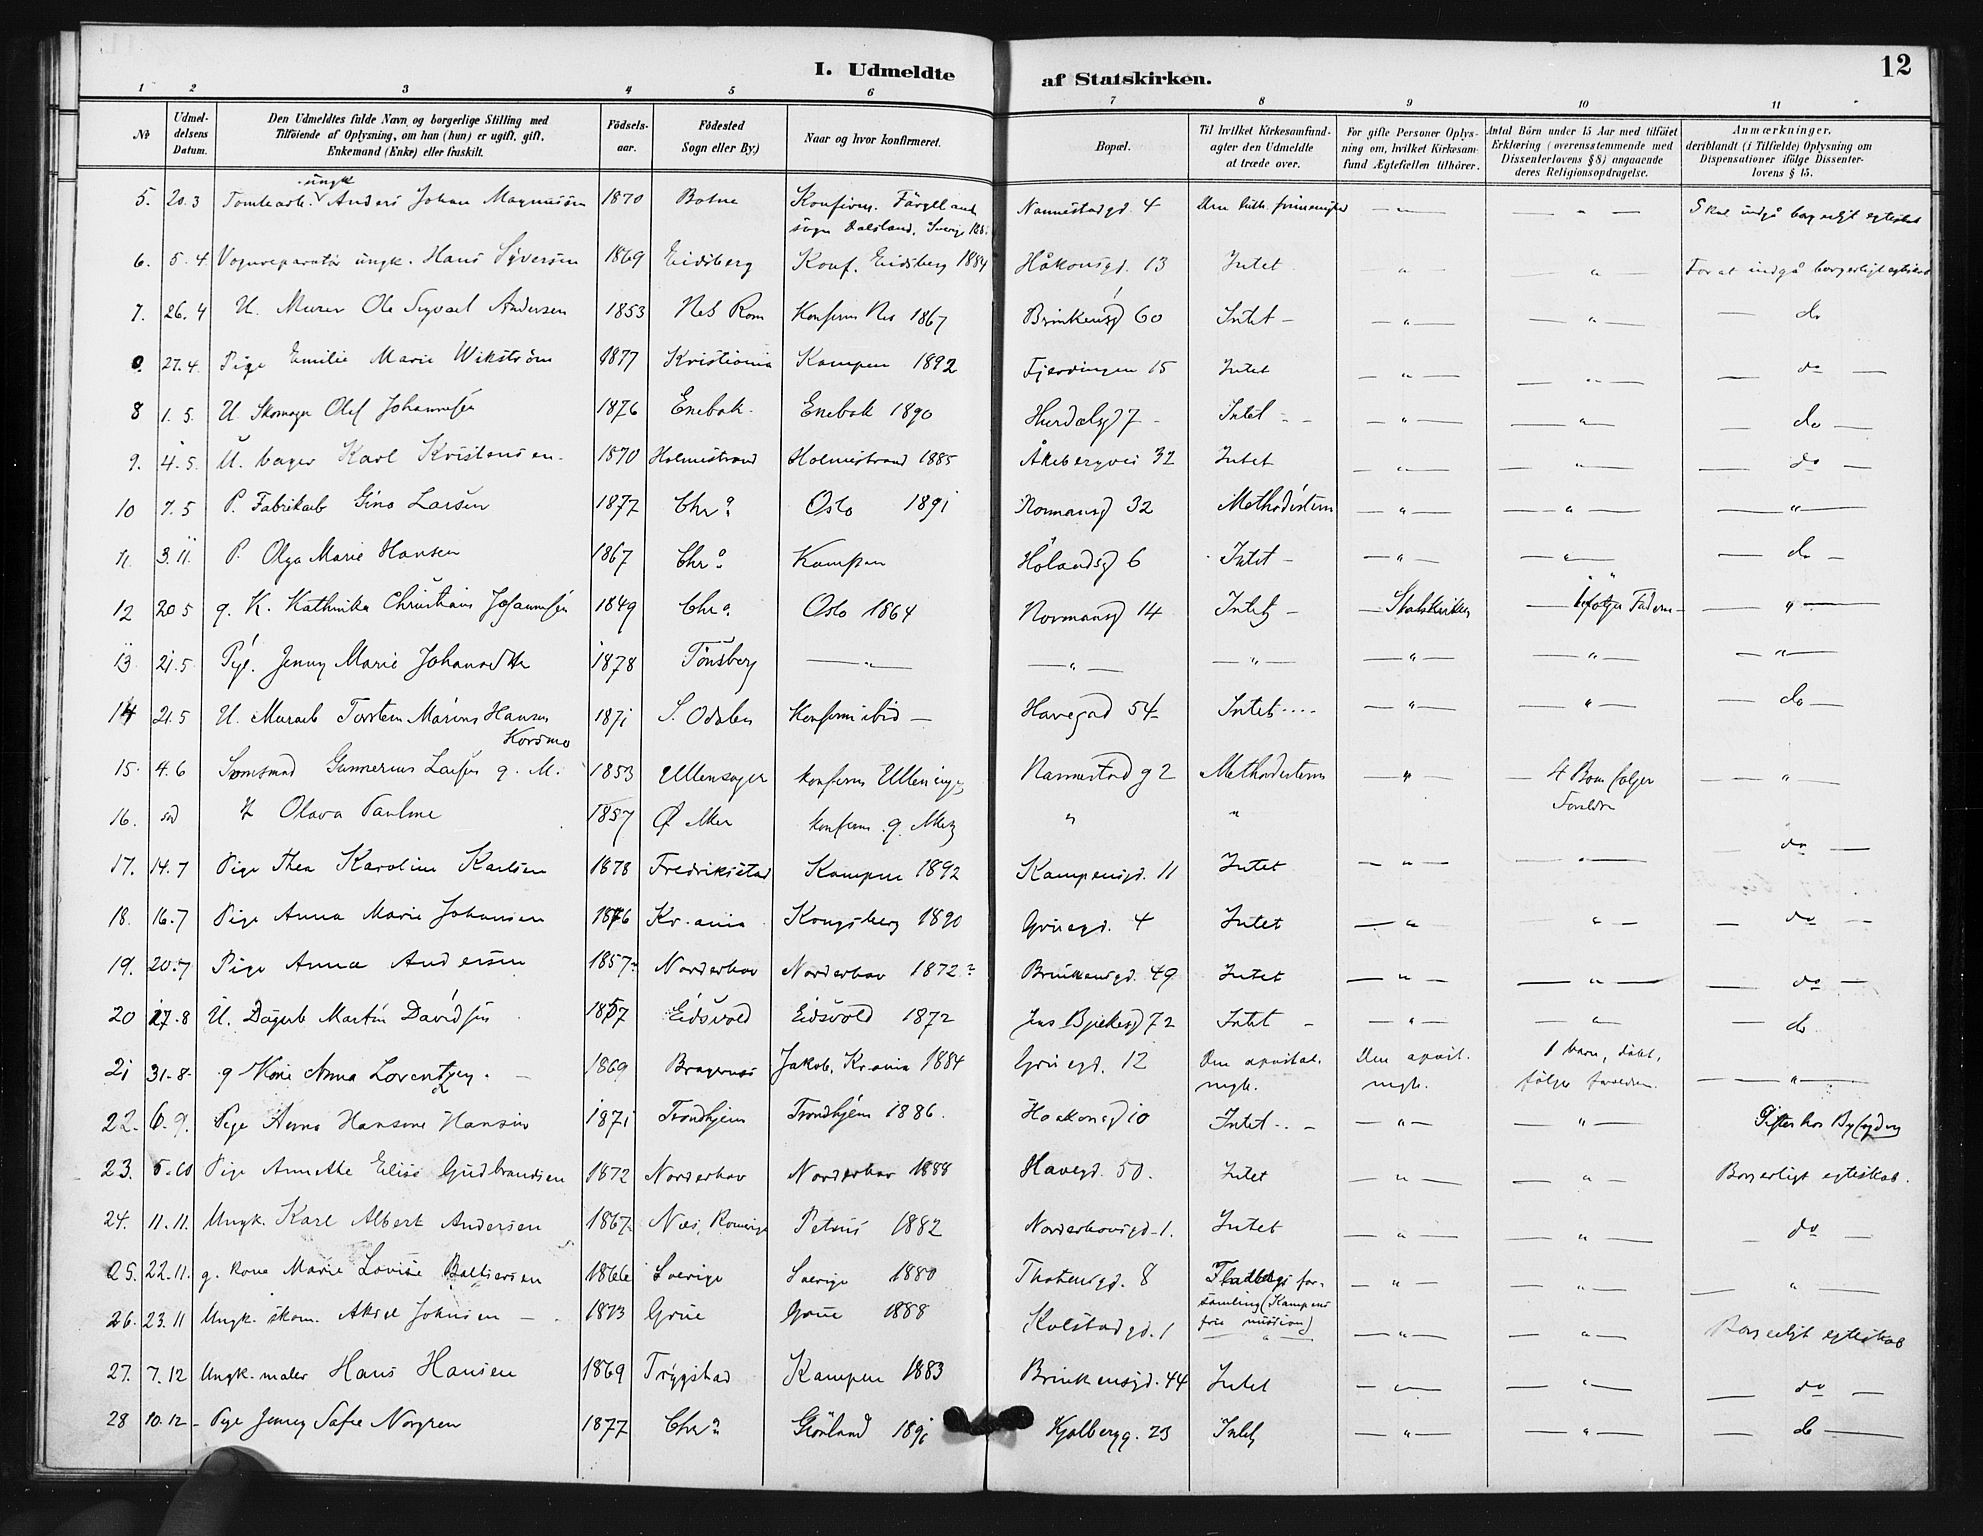 I. Udmeldte af Statskirken. 12
1 2 3 4 5 6 7 8 9 10 11
No
Udmel-
delsens
Datum.
Den Udmeldtes fulde Navn og borgerlige Stilling med
Tilføiende af Oplysning, om han (hun) er ugift, gift,
Enkemand (Enke) eller fraskilt.
Fødsels-
aar.
Fødested
Sogn eller By.)
Naar og hvor konfirmeret.
Bopæl.
Til hvilket Kirkesamfund-
agter den Udmeldte
at træde over.
For gifte Personer Oplys-
ning om, hvilket Kirkesam-
fund Ægtefællen tilhører.
Antal Børn under 15 Aar med tilføiet
Erklæring (overensstemmende med
Dissenterlovens § 8) angaaende
deres Religionsopdragelse.
Anmærkninger.
deriblandt (i Tilfælde) Oplysning om
Dispensationer ifølge Dissenter-
lovens § 15.
ungk
5. 20.3 Tomtearb. Anders Johan Magnussøn 1870 Botne Konfirm. Nannestadgd. 4 Den luth. frimenighed — " — — " — Skal indgå borgerligt egteskab
sogn Dalsland, Sverige
6. 5.4. Vognreparatør ungk. Hans Syversen 1869 Eidsberg Konf. Eidsberg 1884 Håkonsgd. 13 Intet " " For at indgå borgerligt egteskab
7. 26.4 U. Murer Ole Sigvart Andersen 1853 Nes Rom Konfirm Nes 1867 Brinkensgd 60 Intet — — " — — " — — do
27.4. Pige Emilie Marie Wikstrøm 1877 Kristiania Kampen 1892 Fjerdingen 15 Intet — " — — " — — do —
8 1.5. U Skomager Olef Johannesen 1876 Enebak. Enebak 1890 Hurdalsgd 7 Intet — " — — " — — do —
9. 4.5. U. bager Karl Kristensen. 1870 Holmestrand Holmestrand 1885 Åkebergvei 32 Intet — " — — " — — do —
10 7.5 P. Fabrikarb Gina Larsen 1877 Chra Oslo 1891 Normansgd 32 Methodisterne — " — — " — — " —
11. 3.11. P. Olga Marie Hansen 1867 Chra Kampen Hølandsgd 6 Intet — — " — — " — — do —
12 20.5 g. K. Kathinka Christiane Johannesen 1849 Chra Oslo 1864 Normansgd 14 Intet — — Statskirken — følger Faderen — — " —
13 21.5. Pige. Jenny Marie 1878 Tönsberg — " — — " — — " — — " — — " — — " —
14 21.5 U. Murarb Torsten Marius Hansen 1871 S. Odalen Konfirm ibid — Havegad 54 Intet .... — " — — " — — do —
Kordmo
15. 4.6 Gunnerius Larsen g. M. 1853 Ullensager Konfirm Nannestadg 2 Methodisterne — " — 4 Børn følger — " —
Forældre
16. Olava Pauline 1857 Ø Aker konfirm " "
17. 14.7 Pige Thea Karoline Karlsen 1878 Fredriksstad Kampen 1892 Kampensgd. 11 Intet — " — — " — — do —
18. 16.7 Pige Anna Marie Johansen 1876 Kr.ania Kongsberg 1890 Gruegd. 4 Intet — " — " — — do —
19. 20.7 Pige Anna Andersen 1857? Norderhov Norderhov 1872? Brinkensgd. 49 Intet — " — — " — — do —
20 17.8 U. Dagarb Martin Davidsen 1857 Eidsvold Eidsvold 1872 Jens Bjelkesgd 72 Intet — — " — — " — — do
21 31.8. g Kone Anna Lorentzen. — 1869 Bragernes Jakob. Kr.ania 1884 Gruegd. 12 Den apostol. Den apost. 1 barn, døbt,
mgh. mgh. følger forældrene. — " —
22. 6.9. Pige Anna Hansine Hansen 1871 Trondhjem Trondhjem 1886. Haakonsgd 10 Intet .. — — " — — " — Giftes hos Byfogden
23. 5.10 Pige Annethe Elise Gudbrandsen 1872 Norderhov Norderhov 1888 Havegd. 50. Intet — " — — " — Borgerligt egteskab.
24. 11.11. Ungk. Karl Albert Andersen 1867 Nes, Romerige Petrus 1882 Norderhovsgd. 1. Intet — " — — " — — do —
25. 22.11. g. kone Marie Lovise Baltsersen 1866 Sverige Sverige 1880 Thotensgd. 8 for- — " — — " — — " —
samling (Kampens
frie mission)
26. 23.11 Ungk. skom. Aksel Johnsen — 1873 Grue Grue 1888 Kolstadgd. 1 — " — — " — — " — Borgerligt egteskab
27. 7.12 Ungk. maler Hans Hansen 1869 Trygstad Kampen 1883 Brinkensgd. 44 Intet — " — — " — — do —
28 10.12 — Pige Jenny Sofie Norgren 1877 Chra Grønland 1891 Hjelbergg. 23 Intet — " — — " — — do —